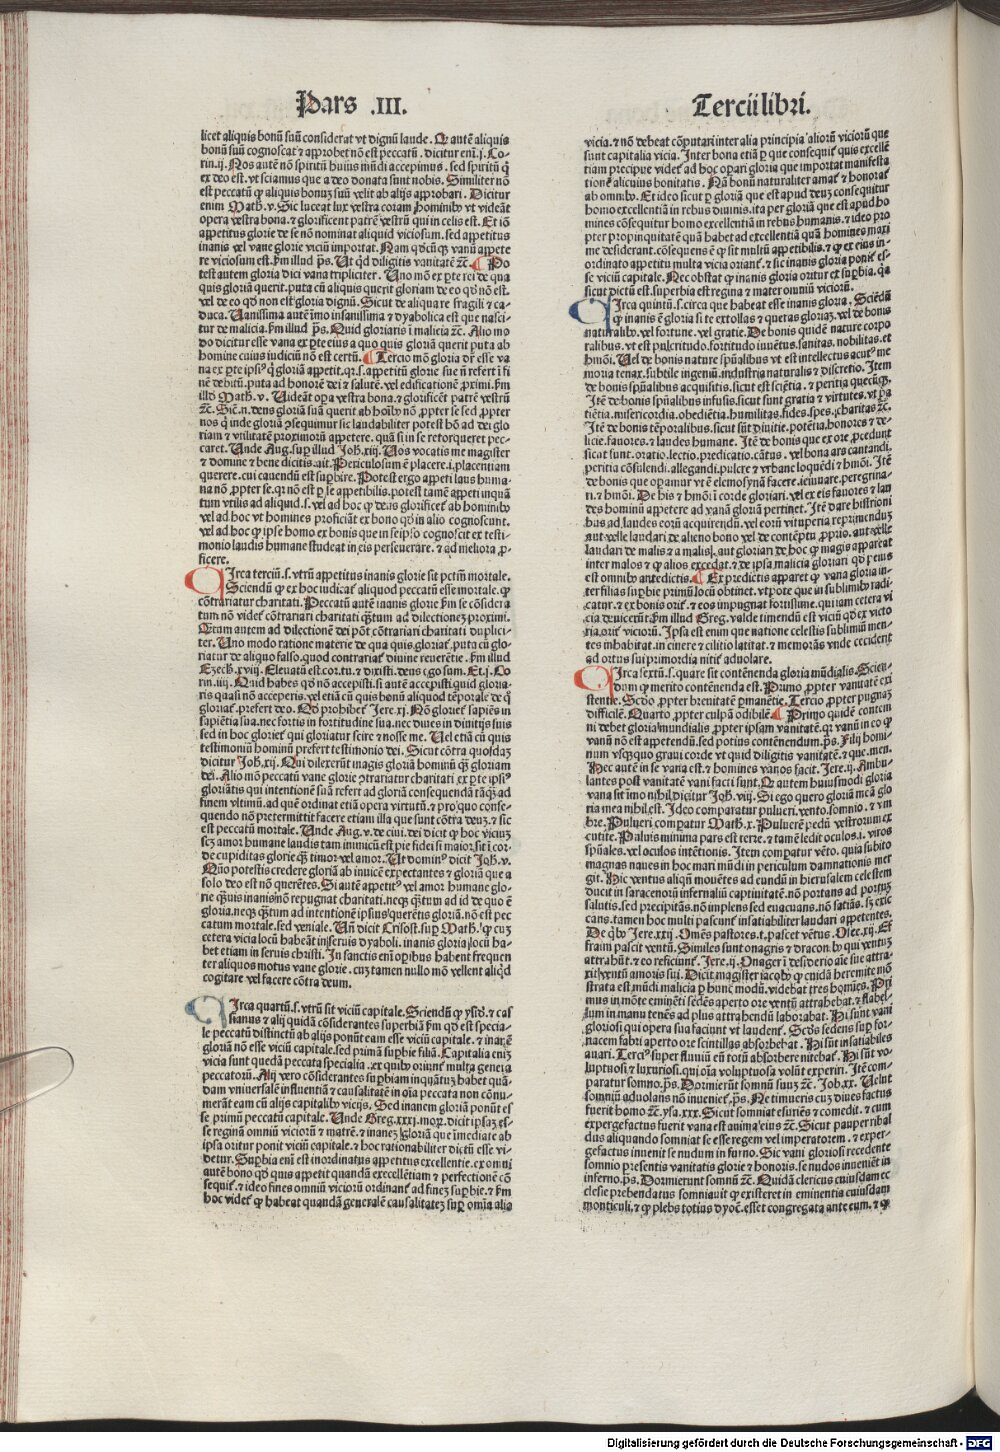 Pars .III.
licet aliquis bonū suū considerat vt dignū laude. Q̄ autē aliquis
bonū suū cognoscat ⁊ approbet nō est peccatū. dicitur eni͂.j. Co-
rin.ij. Nos autē nō spiritū huius mūdi accepimus. sed spiritū q̄
ex deo est. vt sciamus que a deo donata sunt nobis. Similiter nō
est peccatū ꝙ aliquis bonuꝫ suū velit ab alijs approbari. Dicitur
enim Math.v. Sic luceat lux vestra coram hominibꝰ vt videāt
opera vestra bona. ⁊ glorificent patrē vestrū qui in celis est. Et iō
appetitus glorie de se nō nominat aliquid viciosum. sed appetitus
inanis vel vane glorie viciū importat. Nam qd̄cūqꝫ vanū appete
re viciosum est. ẜm illud ps. Ut qd diligitis vanitatē ⁊c̄. Po
test autem gloria dici vana tripliciter. Uno mō ex ꝑte rei de qua
quis gloriā querit. puta cū aliquis querit gloriam de eo qd̄ nō est.
vel de eo qd̄ non est gloria dignū. Sicut de aliqua re fragili ⁊ ca-
duca. Uanissima autē īmo insanissima ⁊ dyabolica est que nasci-
tur de malicia. ẜm illud ps. Quid gloriaris ī malicia ⁊c̄. Alio mo
do dicitur esse vana ex ꝑte eius a quo quis gloriā querit puta ab
homine cuius iudiciū nō est certū. Tercio mō gloria dr̄ esse va
na ex ꝑte ipsiꝰ q̄ gloriā appetit. qꝛ.s. appetitū glorie sue nō refert ī fi
nē debitū. puta ad honorē dei ⁊ salutē. vel edificationē ꝓximi. ẜm
illd̄ Math.v. Uideāt oꝑa vestra bona. ⁊ glorificēt patrē vestrū
nos q̄ inde gloriā ꝯsequimur sic laudabiliter potest hō ad dei glo
riam ⁊ vtilitatē proximorū appetere. quā si in se retorqueret pec-
caret. Unde Aug. suꝑ illud Joh.xiij. Uos vocatis me magister
⁊ domine ⁊ bene dicitis. ait. Periculosum ē placere. i. placentiam
querere. cui cauendū est suꝑbire. Potest ergo appeti laus huma-
na nō ꝓpter se. qꝛ nō est ꝑ se appetibilis. potest tamē appeti inquā
tum vtilis ad aliquid. s. vel ad hoc ꝙ deus glorificet᷑ ab hominibꝰ
vel ad hoc vt homines proficiāt ex bono qd̄ in alio cognoscunt.
vel ad hoc ꝙ ipse homo ex bonis que in seipso cognoscit ex testi-
monio laudis humane studeat in eis perseuerare. ⁊ ad meliora ꝓ-
ficere.
Irca terciū.s. vtrū appetitus inanis glorie sit pctm̄ mortale.
Sciendū ꝙ ex hoc iudicat᷑ aliquod peccatū esse mortale. ꝙ
cōtrariatur charitati. Peccatū autē inanis glorie ẜm se cōsidera
tum nō videt᷑ cōtrariari charitati q̄ꝫtum ad dilectionē ꝓximi.
Q̄ꝫtum autem ad dilectionē dei pōt cōtrariari charitati dupliciter
ter. Uno modo ratione materie de qua quis gloriat᷑. puta cū glo-
riatur de aliquo falso. quod contrariat᷑ diuine reuerētie. ẜm illud
Ezech.xviij. Eleuatū est cor tuū ⁊ dixisti. deus ego sum. Et.j. Co
rin.iiij. Quid habes qd̄ nō accepisti. si autē accepisti quid gloria-
ris quasi nō acceperis. vel etiā cū quis bonū aliquod tēporale de q̄
gloriat᷑. prefert deo. Qd̄ prohibet᷑ Jere.xj. Nō gloriet᷑ sapiēs in
sapiētia sua. nec fortis in fortitudine sua. nec diues in diuitijs suis
sed in hoc gloriet᷑ qui gloriatur scire ⁊ nosse me. Uel etiā cū quis
testimoniū hominū prefert testimonio dei. Sicut cōtra quosdaꝫ
dicitur Joh.xij. Qui dilexerūt magis gloriā hominū q̄ꝫ gloriam
dei. Alio mō peccatū vane glorie ꝯtrariatur charitati ex ꝑte ipsiꝰ
gloriātis qui intentionē suā refert ad gloriā consequendā tāq̄ꝫ ad
finem vltimū. ad quē ordinat etiā opera virtutū. ⁊ pro quo conse-
quendo nō pretermittit facere etiam illa que sunt cōtra deuꝫ. ⁊ sic
est peccatū mortale. Unde Aug.v. de ciui. dei dicit ꝙ hoc viciuꝫ
scꝫ amor humane laudis tam inimicū est pie fidei si maior sit ī cor-
de cupiditas glorie q̄ꝫ timor vel amor. Ut dominꝰ dicit Joh.v.
Quō potestis credere gloriā ab inuicē expectantes ⁊ gloriā que a
solo deo est nō querētes. Si autē appetitꝰ vel amor humane glo-
rie q̄ꝫuis inanis nō repugnat charitati. neqꝫ q̄ꝫtum ad id de quo ē
gloria. neqꝫ q̄ꝫtum ad intentionē ipsius querētis gloriā. nō est pec
catum mortale. sed veniale. Un̄ dicit Crisost. suꝑ Math. ꝙ cuꝫ
cetera vicia locū habeāt in seruis dyaboli. inanis gloria locū ha-
bet etiam in seruis christi. In sanctis eni͂ oꝑibus habent frequen
ter aliquos motus vane glorie. cuꝫ tamen nullo mō vellent aliqd̄
cogitare vel facere cōtra deum.
Irca quartū.s. vtrū sit viciū capitale. Sciendū ꝙ ysid. ⁊ cas
sianus ⁊ alij quidā cōsiderantes superbiā ẜm qd̄ est specia-
le peccatū distinctū ab alijs ponūt eam esse viciū capitale. ⁊ inanē
gloriā nō esse viciū capitale. sed primā suꝑbie filiā. Capitalia eni͂
vicia sunt quedā peccata specialia. ex quibꝰ oriunt᷑ multa genera
peccatorū. Alij vero cōsiderantes suꝑbiam inquātuꝫ habet quā-
dam vniuersalē influentiā ⁊ causalitatē in oīa peccata non cōnu-
merāt eam cū alijs capitalibꝰ vicijs. Sed inanem gloriā ponūt es
se primū peccatū capitale. Unde Greg.xxxj.moꝝ. dicit ipsaꝫ es-
se reginā omniū viciorū ⁊ matrē. ⁊ inaneꝫ gloriā que īmediate ab
ipsa oritur ponit viciū capitale. ⁊ hoc rationabiliter dictū esse vi-
detur. Suꝑbia eni͂ est inordinatus appetitus excellentie. ex omni
autē bono qd̄ quis appetit quandā excellētiam ⁊ perfectionē cō
sequit᷑. ⁊ ideo fines omniū viciorū ordinant᷑ ad fineꝫ suꝑbie. ⁊ ẜm
hoc videt᷑ ꝙ habeat quandā generalē causalitateꝫ suꝑ omīa alia
Tercij libri.
vicia. ⁊ nō debeat cōputari inter alia principia aliorū viciorū que
sunt capitalia vicia. Inter bona etiā ꝑ que consequit᷑ quis excellē
tiam precipue videt᷑ ad hoc oꝑari gloria que importat manifesta
tionē alicuius bonitatis. Nā bonū naturaliter amat᷑ ⁊ honorat᷑
ab omnibꝰ. Et ideo sicut ꝑ gloriā que est apud deuꝫ consequitur
homo excellentiā in rebus diuinis. ita per gloriā que est apud ho
mines cōsequitur homo excellentiā in rebus humanis. ⁊ ideo pro
pter propinquitatē quā habet ad excellentiā quā homines maxi
me desiderant. cōsequens ē ꝙ sit multū appetibilis. ⁊ ꝙ ex eius in-
ordinato appetitu multa vicia oriant᷑. ⁊ sic inanis gloria ponit᷑ es-
se viciū capitale. Nec obstat ꝙ inanis gloria oritur ex suꝑbia. qꝛ
sicut dictū est. superbia est regina ⁊ mater omniū viciorū.
Irca quintū.s. circa que habeat esse inanis gloria. Sciēdū
ꝙ inanis ē gloria si te extollas ⁊ queras gloriaꝫ. vel de bonis
naturalibꝰ. vel fortune. vel gratie. De bonis quidē nature corpo
ralibus. vt est pulcritudo. fortitudo iuuētus. sanitas. nobilitas. et
hmōi. Uel de bonis nature spūalibus vt est intellectus acutꝰ me
moria tenax. subtile ingeniū. industria naturalis ⁊ discretio. Item
de bonis spūalibus acquisitis. sicut est sciētia. ⁊ peritia quecūqꝫ.
Itē de bonis spūalibus infusis. sicut sunt gratia ⁊ virtutes. vt pa
tiētia. misericordia. obediētia. humilitas. fides. spes. charitas ⁊c̄.
Itē de bonis tēporalibus. sicut sūt diuitie. potētia. honores ⁊ de-
licie. fauores. ⁊ laudes humane. Itē de bonis que ex ore ꝓcedunt
sicut sunt. oratio. lectio. predicatio. cātus. vel bona ars cantandi.
peritia cōsulendi. allegandi. pulcre ⁊ vrbane loquēdi ⁊ hmōi. Itē
de bonis que oꝑamur vt ē elemosynā facere. ieiunare. peregrina-
ri. ⁊ hmōi. De his ⁊ hmōi ī corde gloriari. vel ex eis fauores ⁊ lau
des hominū appetere ad vanā gloriā pertinet. Itē dare histrioni
bus ad laudes eorū acquirendū. vel eorū vituperia reprimendū
aut velle laudari de alieno bono vel de contēptu ꝓprio. aut velle
laudari de malis ⁊ a malis. aut gloriari de hoc ꝙ magis appareat
inter malos ⁊ ꝙ alios excedat. ⁊ de ipsa malicia gloriari qd̄ peius
est omnibꝰ antedictis. Ex predictis apparet ꝙ vana gloria in-
ter filias suꝑbie primū locū obtinet. vtpote que in sublimibꝰ radi
catur. ⁊ ex bonis orit᷑. ⁊ eos impugnat fortissime. qui iam cetera vi
cia deuicerūt. ẜm illud Greg. valde timendū est viciū qd̄ ex victo
ria orit᷑ viciorū. Ipsa est enim que natione celestis sublimiū men-
tes inhabitat. in cinere ⁊ cilitio latitat. ⁊ memoras vnde cecident
ad ortus sui primordia nitit᷑ aduolare.
Irca sextū.s. quare sit contēnenda gloria mūdialis. Scien-
dum ꝙ merito contēnenda est. Primo ꝓpter vanitatē exi
stentie. Scd̄o ꝓpter breuitatē ꝑmanētie. Tercio ꝓpter pugnaꝫ
difficilē. Quarto ꝓpter culpā odibilē. Primo quidē contem
ni debet gloria mundialis ꝓpter ipsam vanitatē. qꝛ vanū in eo ꝙ
vanū nō est appetendū. sed potius contēnendum. ps. Filij homi-
num vsqꝫquo graui corde vt quid diligitis vanitatē. ⁊ que. men.
Nec autē in se vana est. ⁊ homines vanos facit. Jere.ij. Ambu-
lantes post vanitatē vani facti sunt. Q̄ autem huiusmodi gloria
vana sit īmo nihil. dicitur Joh.viij. Si ego quero gloriā meā glo
ria mea nihil est. Ideo comparatur pulueri. vento. somnio. ⁊ vm
bre. Pulueri comꝑatur Math.x. Puluerē pedū vestrorum ex
cutite. Puluis minima pars est terre. ⁊ tamē ledit oculos. i. viros
spūales. vel oculos intētionis. Item comꝑatur vēto. quia subito
magnas naues in hoc mari mūdi in periculum damnationis mer
git. Hic ventus aliqn̄ mouētes ad eundū in hierusalem celestem
ducit in saracenorū infernaliū captiuitatē. nō portans ad portuꝫ
salutis. sed precipitās. nō implens sed euacuans. nō satiās. sꝫ exic
cans. tamen hoc multi pascunt᷑ insatiabiliter laudari appetentes.
De qbꝰ Jere.xxij. Omēs pastores. t. pascet vētus. Osee.xij. Ef
fraim pascit ventū. Similes sunt onagris ⁊ draconibꝰ qui ventuꝫ
attrahūt. ⁊ eo reficiunt᷑. Jere.ij. Onager ī desiderio aīe sue attra-
xit ventū amoris sui. Dicit magister iacobꝰ ꝙ cuidā heremite mō
strata est mūdi malicia ꝑ hunc modū. videbat tres homīes. Pri
mus in mōte emineti sedēs aperto ore ventū attrahebat. ⁊ flabel-
lum in manu tenēs ad plus attrahendū laborabat. Hi sunt vani
gloriosi qui opera sua faciunt vt laudent᷑. Scd̄s sedens sup for-
nacem fabri aperto ore scintillas absorbebat. Hi sūt insatiabiles
auari. Terciꝰ super fluuiū eū totū absorbere nitebat᷑. Hi sūt vo-
luptuosi ⁊ luxuriosi. qui oīa voluptuosa volūt experiri. Itē com-
paratur somno. ps. Dormierūt somnū suuꝫ ⁊c̄. Job.xx. Uelut
somniū aduolans nō inueniet᷑. ps. Ne timueris cuꝫ diues factus
fuerit homo ⁊c̄. ysa.xxx. Sicut somniat esuriēs ⁊ comedit. ⁊ cum
expergefactus fuerit vana est anima eius ⁊c̄. Sicut pauper ribal
dus aliquando somniat se esse regem vel imperatorem. ⁊ exper-
gefactus inuenit se nudum in furno. Sic vani gloriosi recedente
somnio presentis vanitatis glorie ⁊ honoris. se nudos inueniēt in
inferno. ps. Dormierunt somnū ⁊c̄. Quidā clericus cuiusdam ec
clesie prebendatus somniauit ꝙ existeret in eminentia cuiusdam
monticuli. ⁊ ꝙ plebs totius dyoc̄. esset congregata ante eum. ⁊ ꝙ
Digitalisierung gefördert durch die Deutsche Forschungsgemeinschaft - DFG